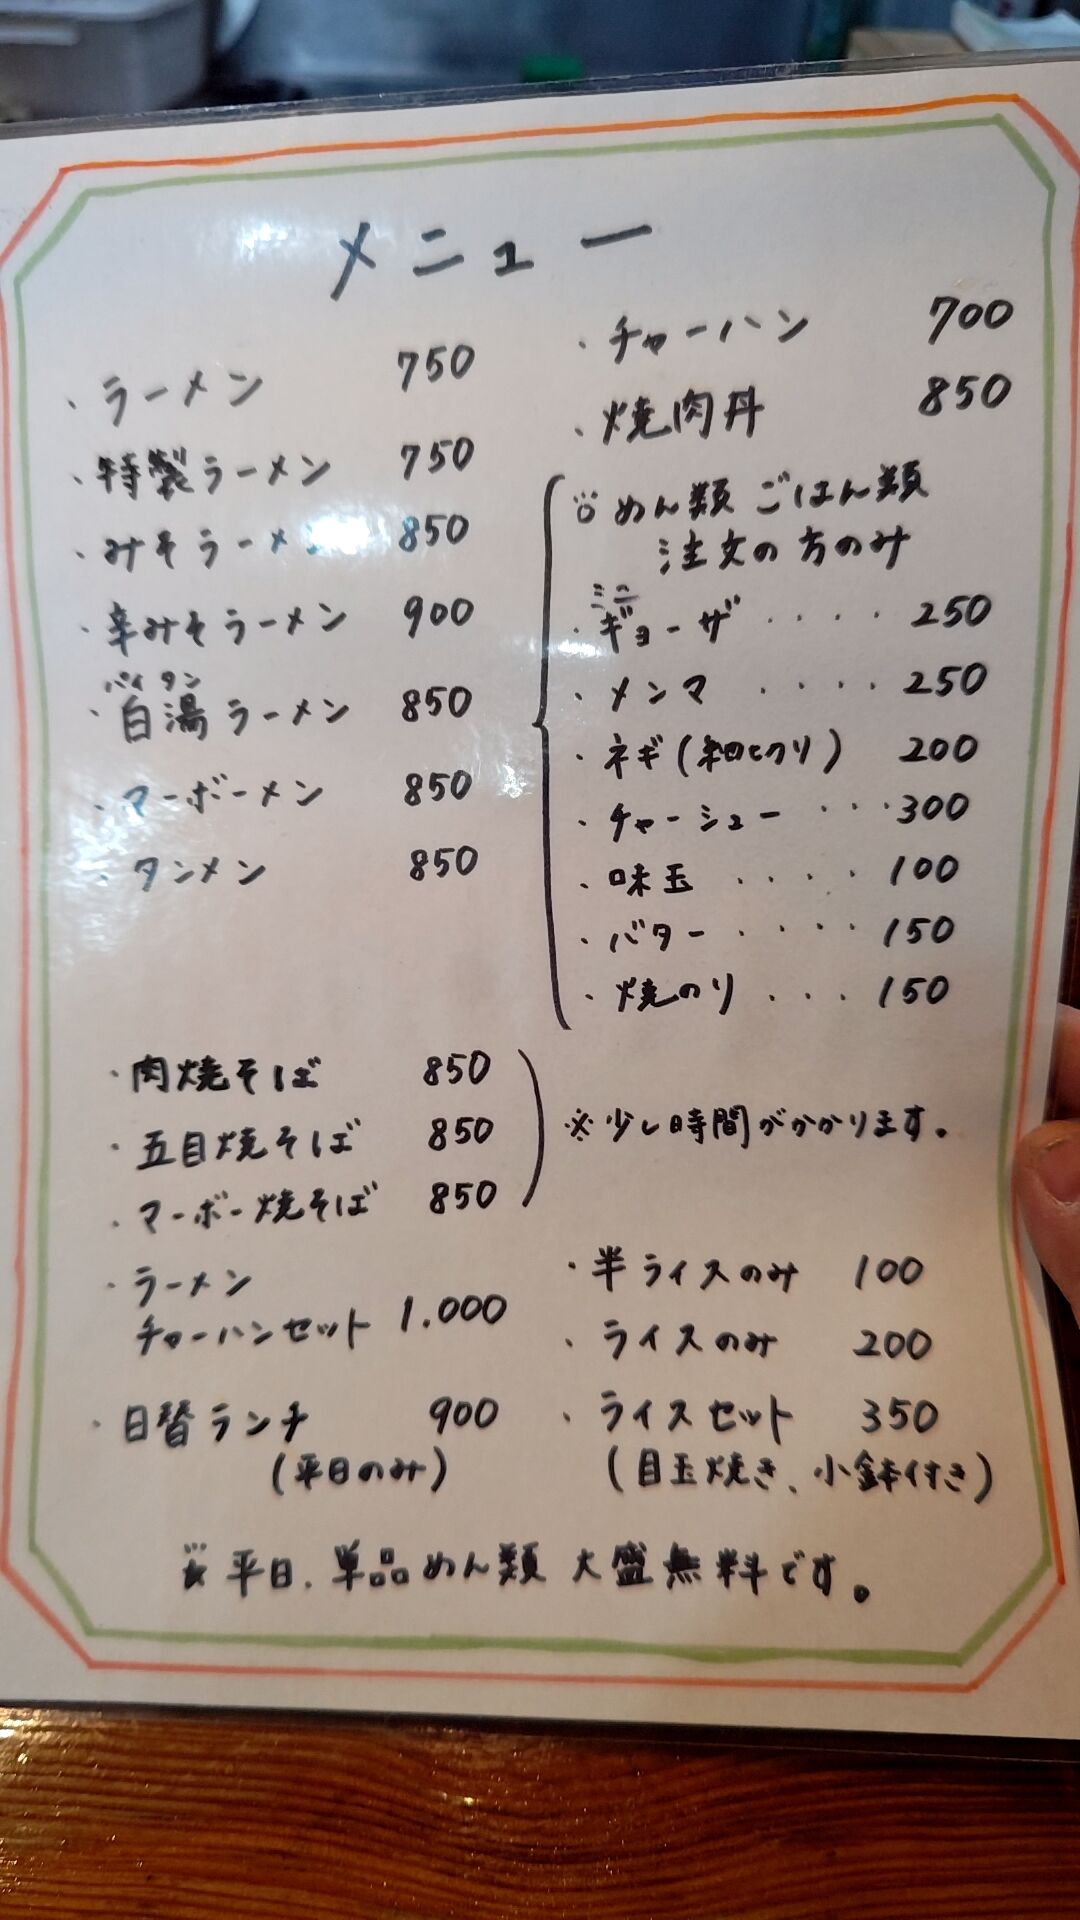 メニュー
・ラーメン 750
・特製ラーメン 750
・みそラーメン 850
・辛みそラーメン 900
バイタン
・白湯ラーメン 850
・マーボーメン 850
・タンメン 850
・チャーハン 700
・焼肉丼 850
めん類 ごはん類
注文の方のみ
ミニ
・ギョーザ ････ 250
・メンマ ････ 250
・ネギ(細切り) 200
・チャーシュー ･･･ 300
・味玉 ････ 100
・バター ････ 150
・焼のり ････ 150
・肉焼そば 850
・五目焼そば 850
・マーボー焼そば 850
※少し時間がかかります。
・ラーメン
チャーハンセット 1.000
・日替ランチ 900
(平日のみ)
・半ライスのみ 100
・ライスのみ 200
・ライスセット 350
(目玉焼き、小鉢付き)
平日、単品めん類 大盛無料です。